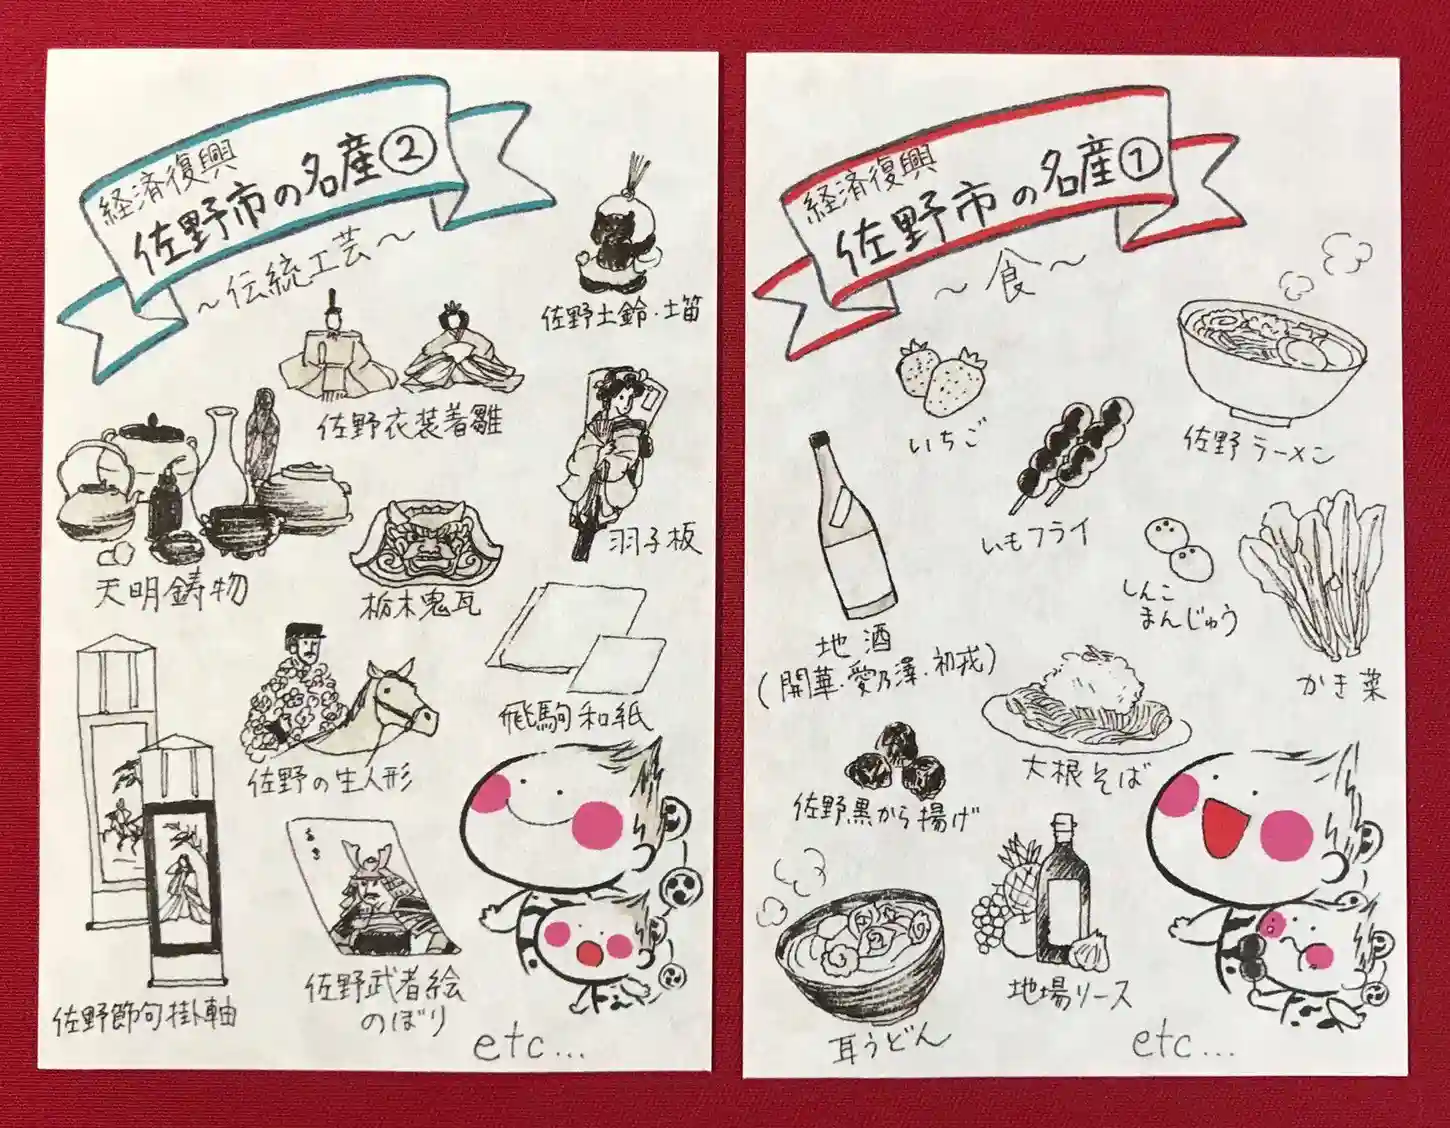 経済復興
佐野市の名産②
～伝統工芸～
佐野土鈴・土笛
佐野衣装着雛
羽子板
天明鋳物
栃木鬼瓦
飛駒和紙
佐野の生人形
佐野節句掛軸
佐野武者絵
のぼり
etc...
経済復興
佐野市の名産①
～食～
いちご
佐野ラーメン
いもフライ
しんこ
まんじゅう
地酒
(開華・愛乃澤・初戎)
かき菜
大根そば
佐野黒から揚げ
耳うどん
地場リース
etc...